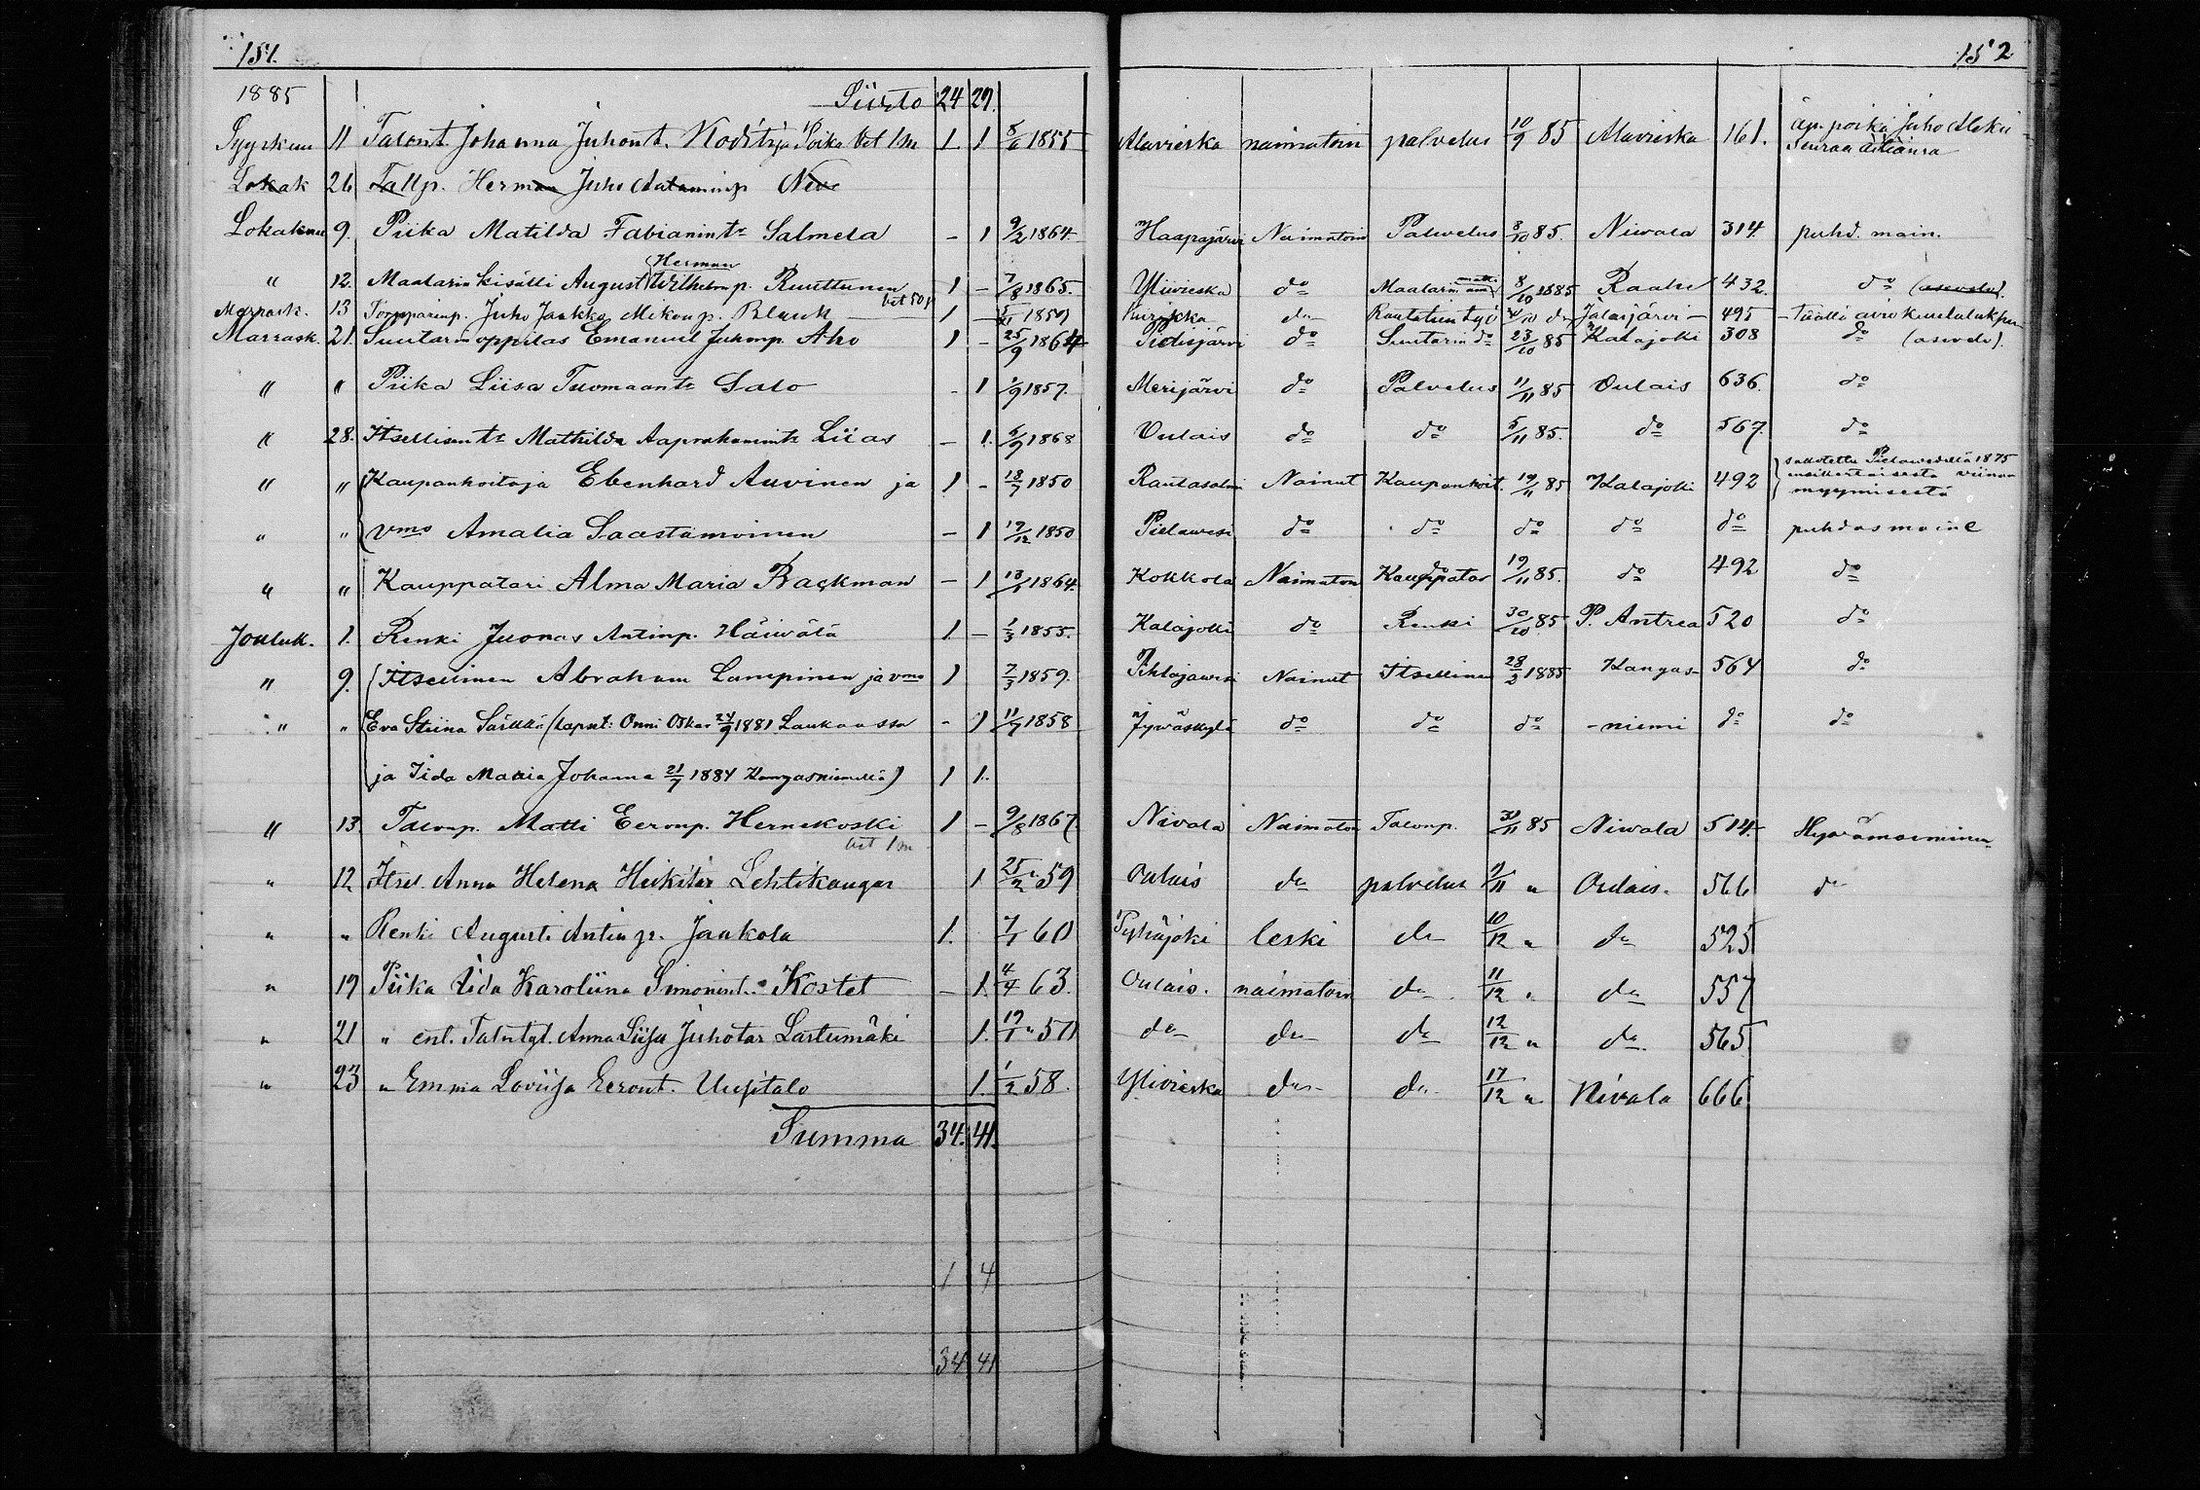 151. 152
1885 Siirto 24 29.
Syyskuu 11 Talont. Johanna Juhont. Poika 1 1 8/6 1855 Alavieska naimatoin palvelus 10/9 85 Alavieska 161. Äp. poika Juho Aleksi
Seuraa äitiänsä
Lokak 26 Tallp. Herman Juho
Lokakuu 9. Piika Matilda Fabianintr Salmela – 1 9/2 1864. Haapajärvi Naimatoin Palvelus 8/10 85. Niwala 314. puhd. main.
Herman
" 12. Maalarin kisälli August Wilhelm p. Ruuttunen 1 – 7/8 1865. Ylivieska do Maalarin 8/10 1885 Raahe 432. do
Marrask. 13 Torpparinp. Juho Jaakko Mikonp. 1 – 1859 Kurikka do Rautatien työ do Jalasjärvi – 495 –
Marrask. 21. Suutarinoppilas Emanuel Juhonp. Aho 1 – 25/9 1864 Pidisjärvi do Suutarin do 23/10 85 Kalajoki 308 do
" " Piika Liisa Tuomaantr Salo – 1 1/9 1857. Merijärvi do Palvelus 11/11 85 Oulais 636. do
" 28. Itsellisentr Mathilda Liias – 1. 5/9 1868 Oulais do do 5/11 85. do 567. do
" " Kaupanhoitaja Ebenhard Auvinen ja 1 – 18/7 1850 Rautasalmi Nainut Kaupanhoit. 19/11 85 Kalajoki 492 sakotettu Pielawedellä 1875
ensikertaisesta viinan
myymisestä
" " vmo Amalia Saastamoinen – 1 19/12 1850 Pielawesi do do do do do puhdas maine
" " Kauppatari Alma Maria Backman – 1 13/1 1864. Kokkola Naimaton Kauppatar 19/11 85. do 492 do
Jouluk. 1. Renki Juonas Antinp. Häiwälä 1 – 1/3 1855. Kalajoki do Renki 30/10 85 P. Antrea 520 do
" 9. Itsellinen Abraham Lampinen ja vmo 1 7/3 1859. Pihlajawesi Nainut Itsellinen 28/2 1885 Kangas- 564 do
" " Eva Stiina Särkkä (lapset: Onni Oskar 24/9 1881 Laukaassa – 1 11/7 1858 Jywäskylä do do do -niemi do do
ja Iida Maria Johanna 21/7 1884 Kangasniemellä) 1 1.
" 13. Talonp. Matti Eeronp. Hernekoski 1 – 9/8 1867 Nivala Naimaton Talonp. 30/11 85 Niwala 514. Hyvämaineinen
" 12 Itsel. Anna Helena Heikitär Lehtikangas 1 25/2 59 Oulais do palvelus 9/11 " Oulais. 566 do
" " Renki Augusti Antin p. Jaakola 1. 7/1 60 Pyhäjoki leski do 10/12 " do 525
" 19 Piika Iida Karoliina Simonint. Kostet – 1. 4/4 63. Oulais. naimatoin do 11/12 " do 557
" 21 " ent. Anna Liisa Juhotar Lastumäki 1. 19/1 50 do do do 12/12 " do 565
" 23 " Emma Loviisa Eeront. Uusitalo 1. 1/2 58. Ylivieska do do 17/12 " Nivala 666
Summa 34. 41.
1 4
34 41